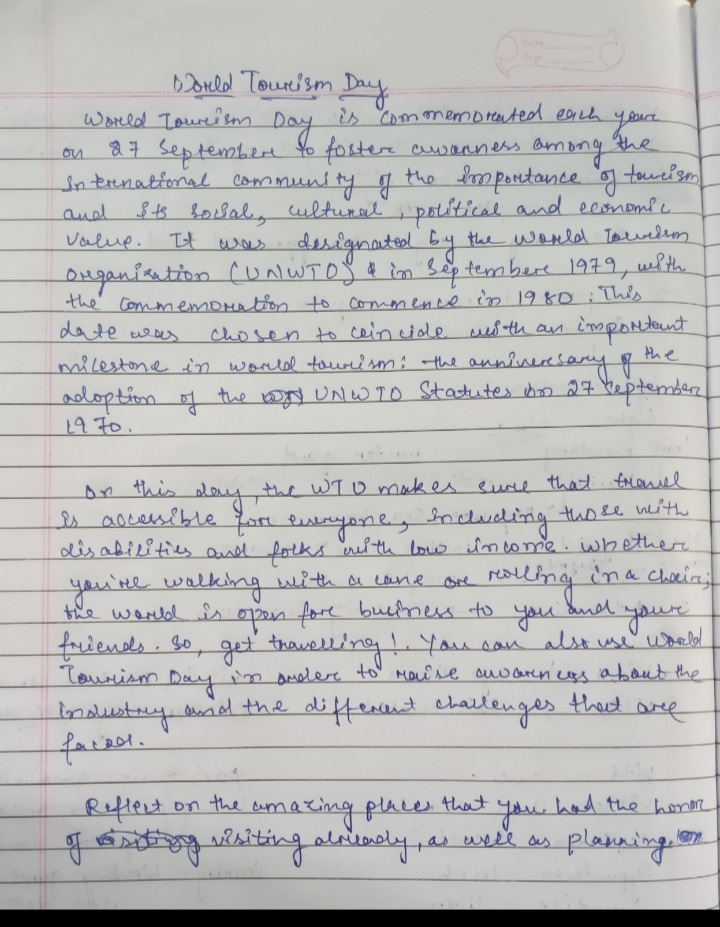 World Tourism Day
World Tourism Day is commemorated each year
on 27 September to foster awarness among the
International community of the importance of tourism
and its social, cultural, political and economic
value. It was designated by the World Tourism
Organization (UNWTO) in September 1979, with
the commemoration to commence in 1980. This
date was chosen to coincide with an important
milestone in world tourism: the anniversary of the
adoption of the UNWTO Statutes on 27 September
1970.
On this day, the WTO makes sure that travel
is accessible for everyone, including those with
disabilities and folks with low income. Whether
you're walking with a cane or rolling in a chair,
the world is open for business to you and your
friends. So, get travelling! You can also use World
Tourism Day in order to raise awarness about the
industry and the different challenges that are
faced.
Reflect on the amazing places that you had the honor
of visiting already, as well as planning